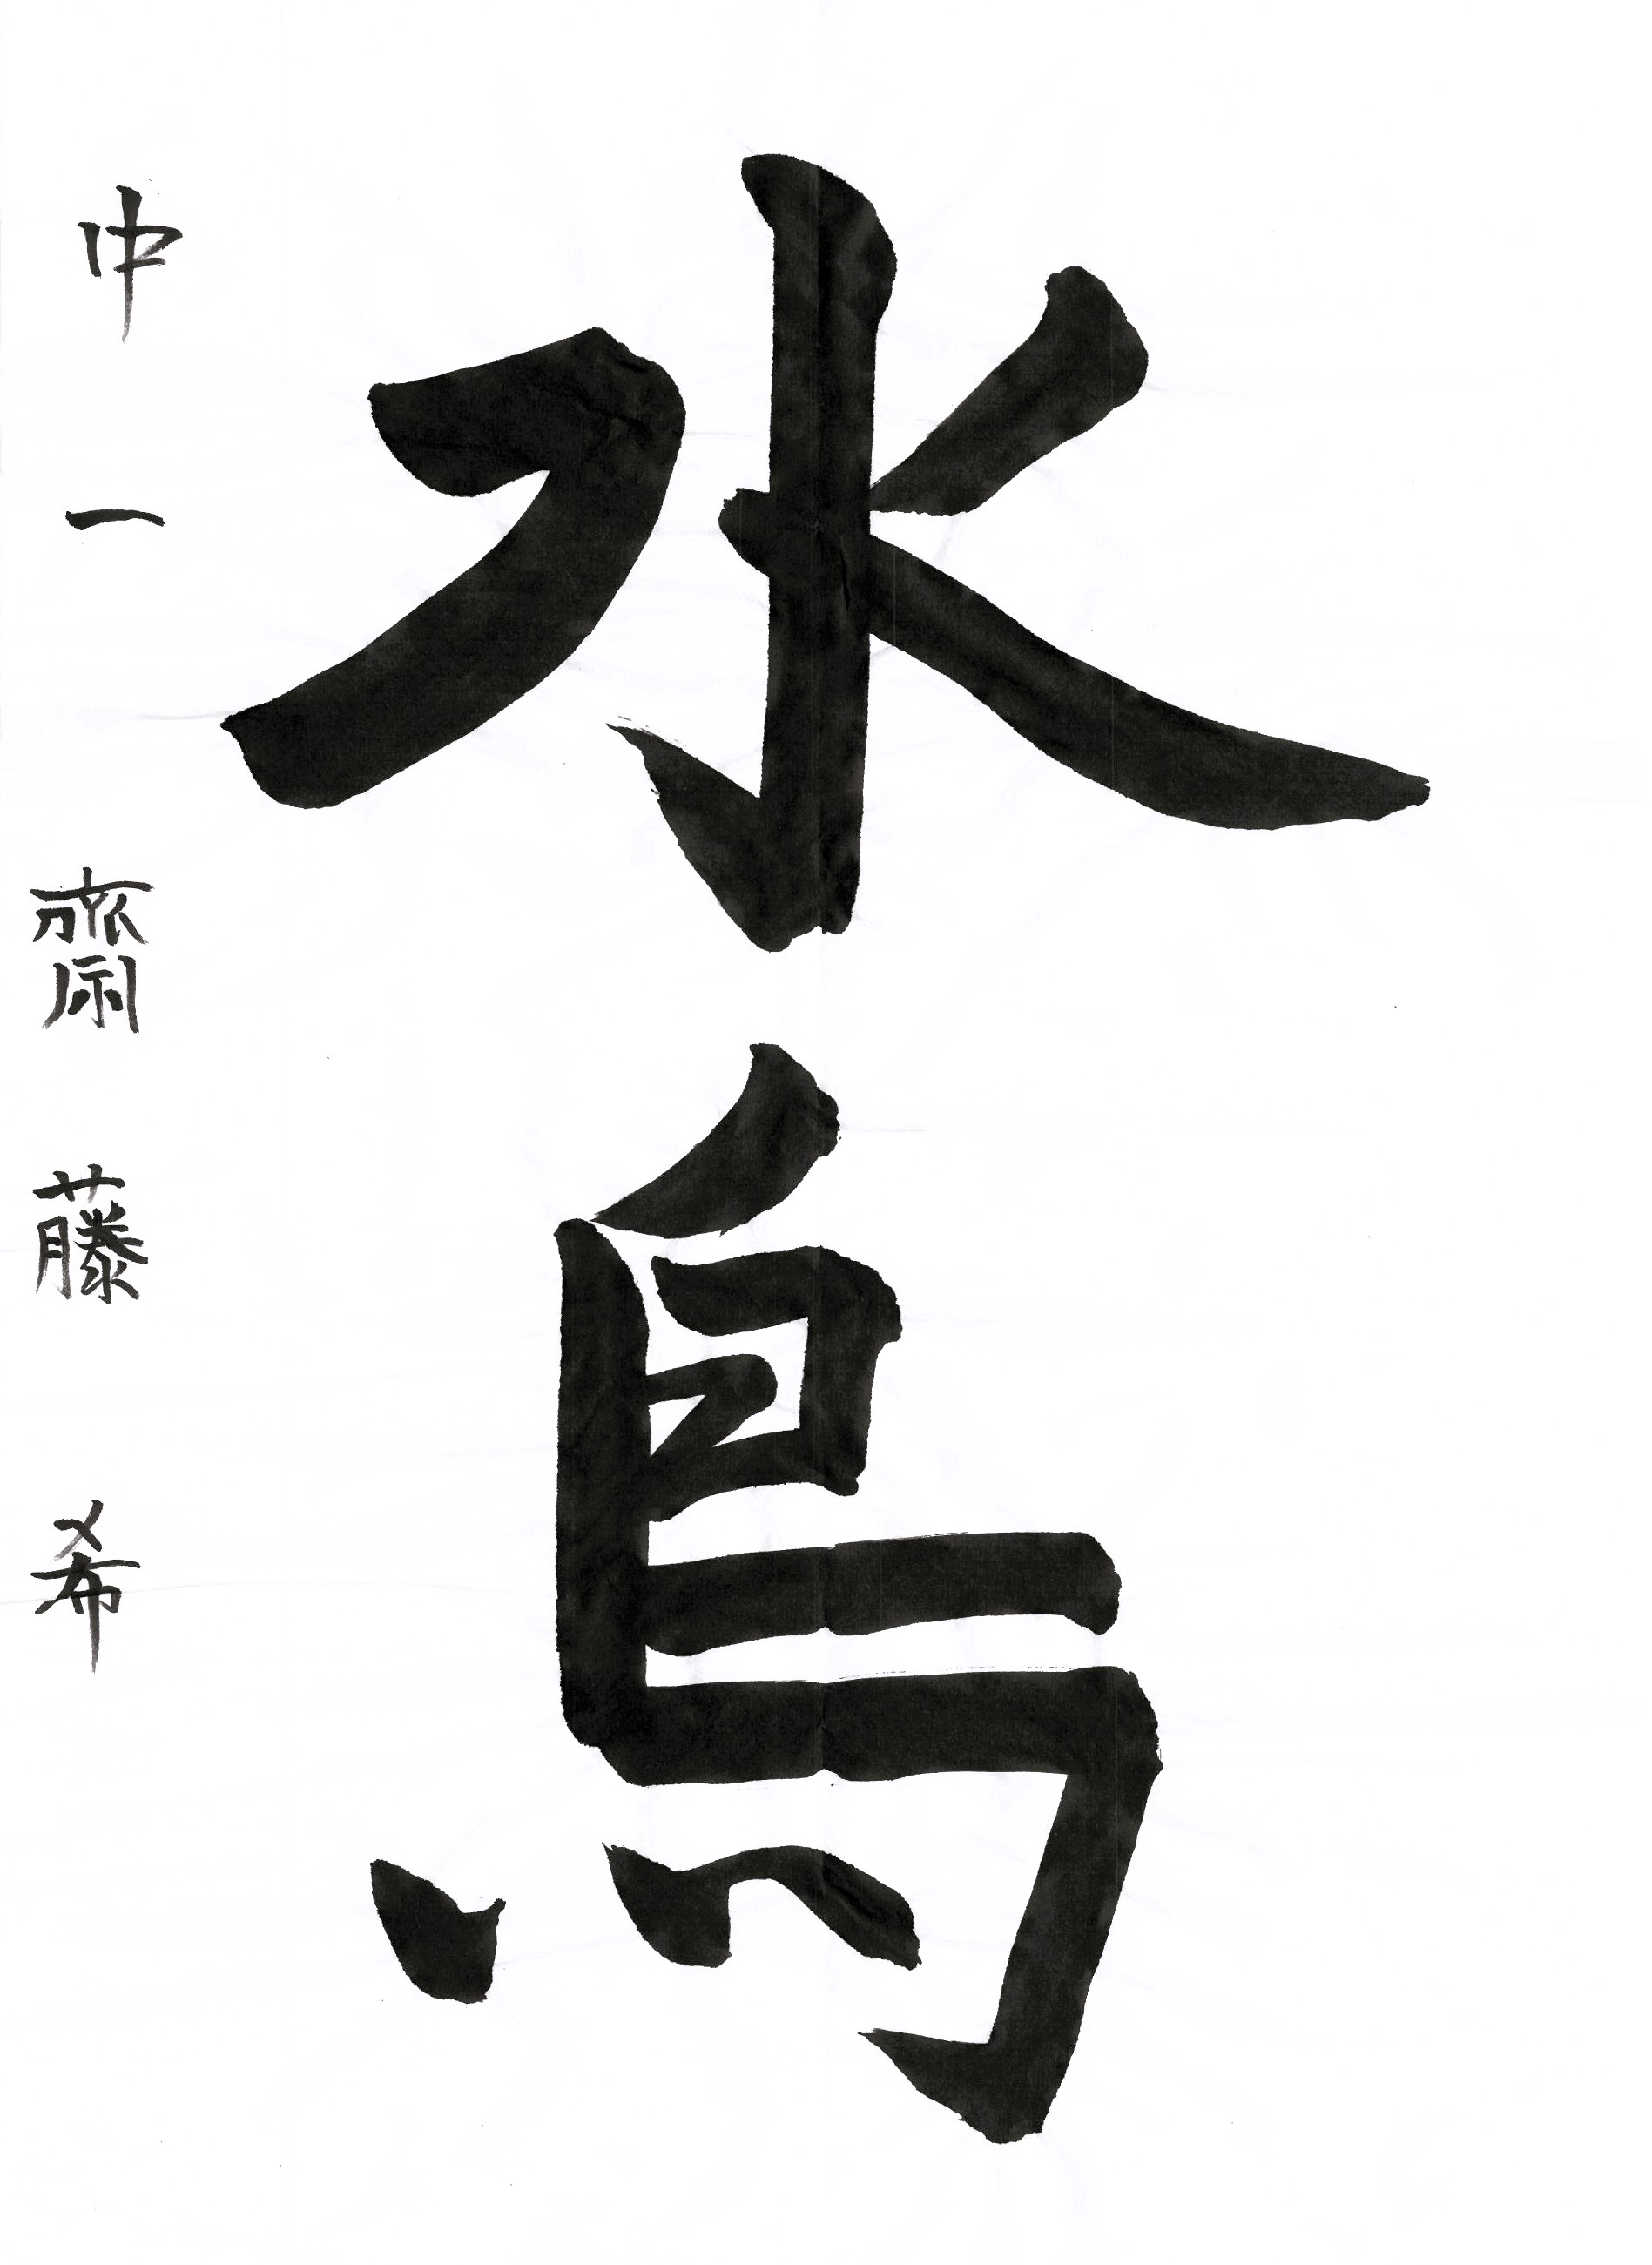 水鳥
中一 齋藤希